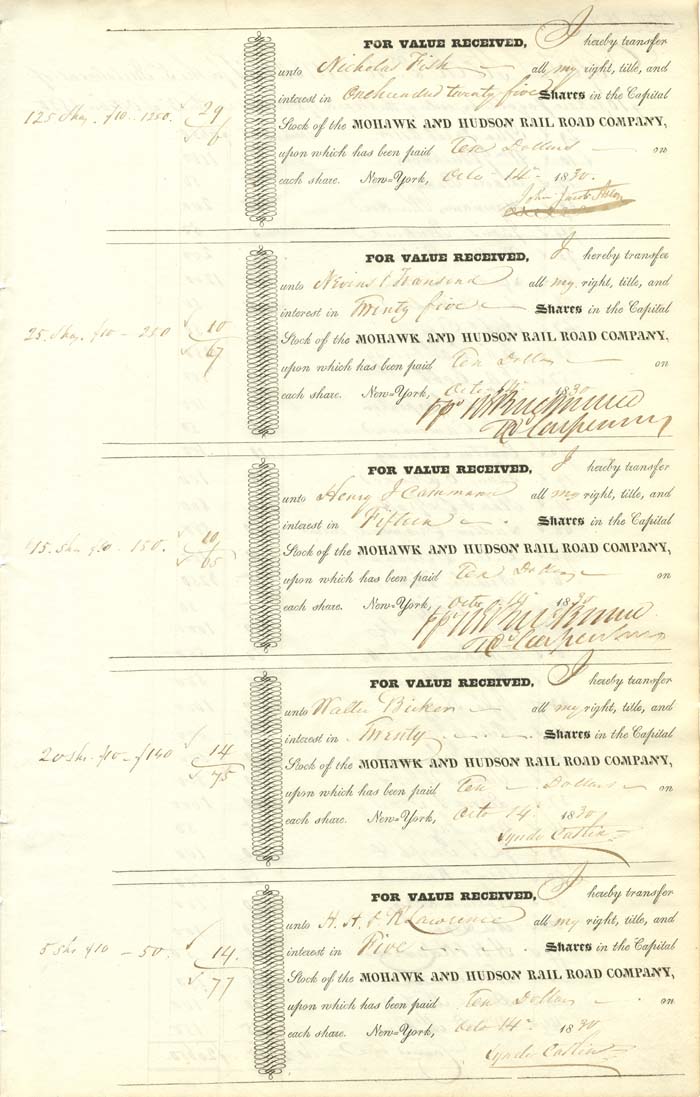 FOR VALUE RECEIVED, I hereby transfer
unto Nicholas Fish all my right, title, and
interest in One hundred twenty five Shares in the Capital
125 Shs. $10 .. 1250. 29
6
Stock of the MOHAWK AND HUDSON RAIL ROAD COMPANY,
upon which has been paid Ten Dollars on
each share. New=York, Octo 14th 1830.
John Jacob Astor
FOR VALUE RECEIVED, I hereby transfer
unto Nevins & Townsend all my right, title, and
interest in Twenty five Shares in the Capital
25 Shs. $10 - 250 10
67
Stock of the MOHAWK AND HUDSON RAIL ROAD COMPANY,
upon which has been paid Ten Dollars on
each share. New=York, Octo 14th 1830
FOR VALUE RECEIVED, I hereby transfer
unto Henry J Cammann all my right, title, and
interest in Fifteen Shares in the Capital
15. Shs $10 .. 150. 10
65
Stock of the MOHAWK AND HUDSON RAIL ROAD COMPANY,
upon which has been paid Ten Dollars on
each share. New=York, Octo 14th 1830
FOR VALUE RECEIVED, I hereby transfer
unto Walter Bicker all my right, title, and
interest in Twenty Shares in the Capital
20 Shs. $10 - 14
75
Stock of the MOHAWK AND HUDSON RAIL ROAD COMPANY,
upon which has been paid Ten Dollars on
each share. New=York, Octo 14th 1830
Lynde Catlin
FOR VALUE RECEIVED, I hereby transfer
unto H. A. & R Lawrence all my right, title, and
interest in Five Shares in the Capital
5 Shs $10 - 50. 14.
77
Stock of the MOHAWK AND HUDSON RAIL ROAD COMPANY,
upon which has been paid Ten Dollars on
each share. New=York, Octo 14th 1830
Lynde Catlin